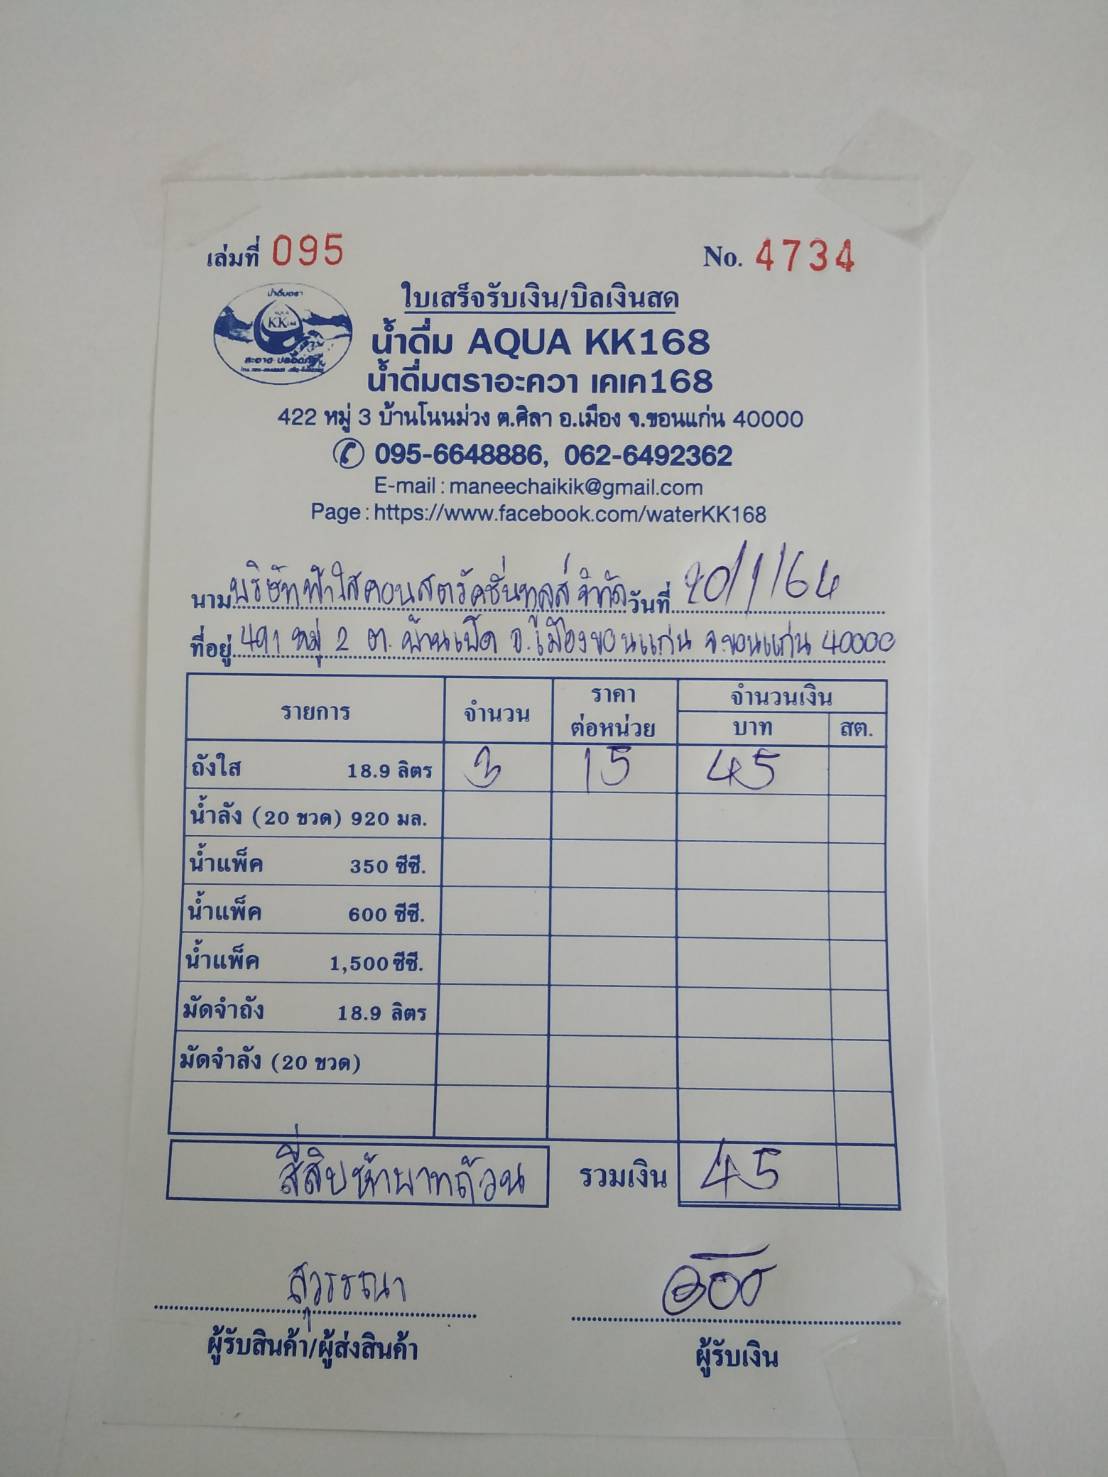 เล่มที่ 095 No. 4734
น้ำดื่มตรา
KK168
ใบเสร็จรับเงิน/บิลเงินสด
น้ำดื่ม AQUA KK168
น้ำดื่มตราอะควา เคเค168
422 หมู่ 3 บ้านโนนม่วง ต.ศิลา อ.เมือง จ.ขอนแก่น 40000
095-6648886, 062-6492362
E-mail : maneechaikik@gmail.com
Page : https://www.facebook.com/waterKK168
นาม บริษัทฟ้าใสคอนสตรัคชั่นทูลส์ จำกัด วันที่ 20/1/64
ที่อยู่ 491 หมู่ 2 ต.บ้านเป็ด อ.เมืองขอนแก่น จ.ขอนแก่น 40000
รายการ จำนวน ราคาต่อหน่วย จำนวนเงิน
บาท สต.
ถังใส 18.9 ลิตร 3 15 45
น้ำลัง (20 ขวด) 920 มล.
น้ำแพ็ค 350 ซีซี.
น้ำแพ็ค 600 ซีซี.
น้ำแพ็ค 1,500 ซีซี.
มัดจำถัง 18.9 ลิตร
มัดจำลัง (20 ขวด)
สี่สิบห้าบาทถ้วน รวมเงิน 45
สุวรรณา
ผู้รับสินค้า/ผู้ส่งสินค้า ผู้รับเงิน